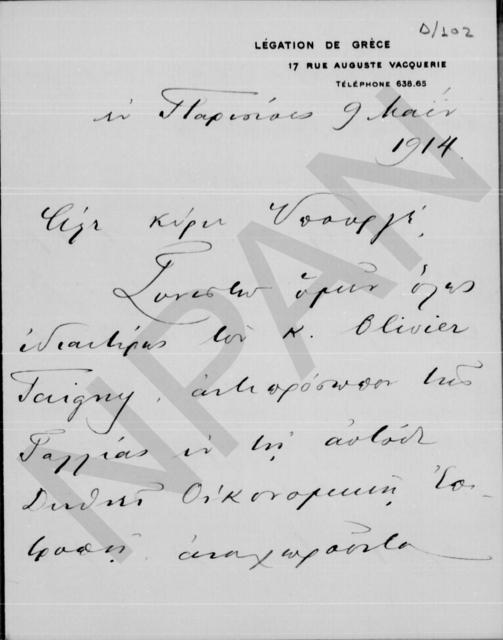 D/102
LÉGATION DE GRÈCE
17 RUE AUGUSTE VACQUERIE
TÉLÉPHONE 638.65
ἐν Παρισίοις 9 Μαΐου
1914.
Φίλε κύριε Ὑπουργέ,
Συνιστῶ ὑμῖν ὅλως
ἰδιαιτέρως τὸν κ. Olivier
Taigny, ἀντιπρόσωπον τῆς
Γαλλίας ἐν τῇ αὐτόθι
Διεθνεῖ Οἰκονομικῇ Ἐπι-
τροπῇ, ἀναχωροῦντα
NPAN